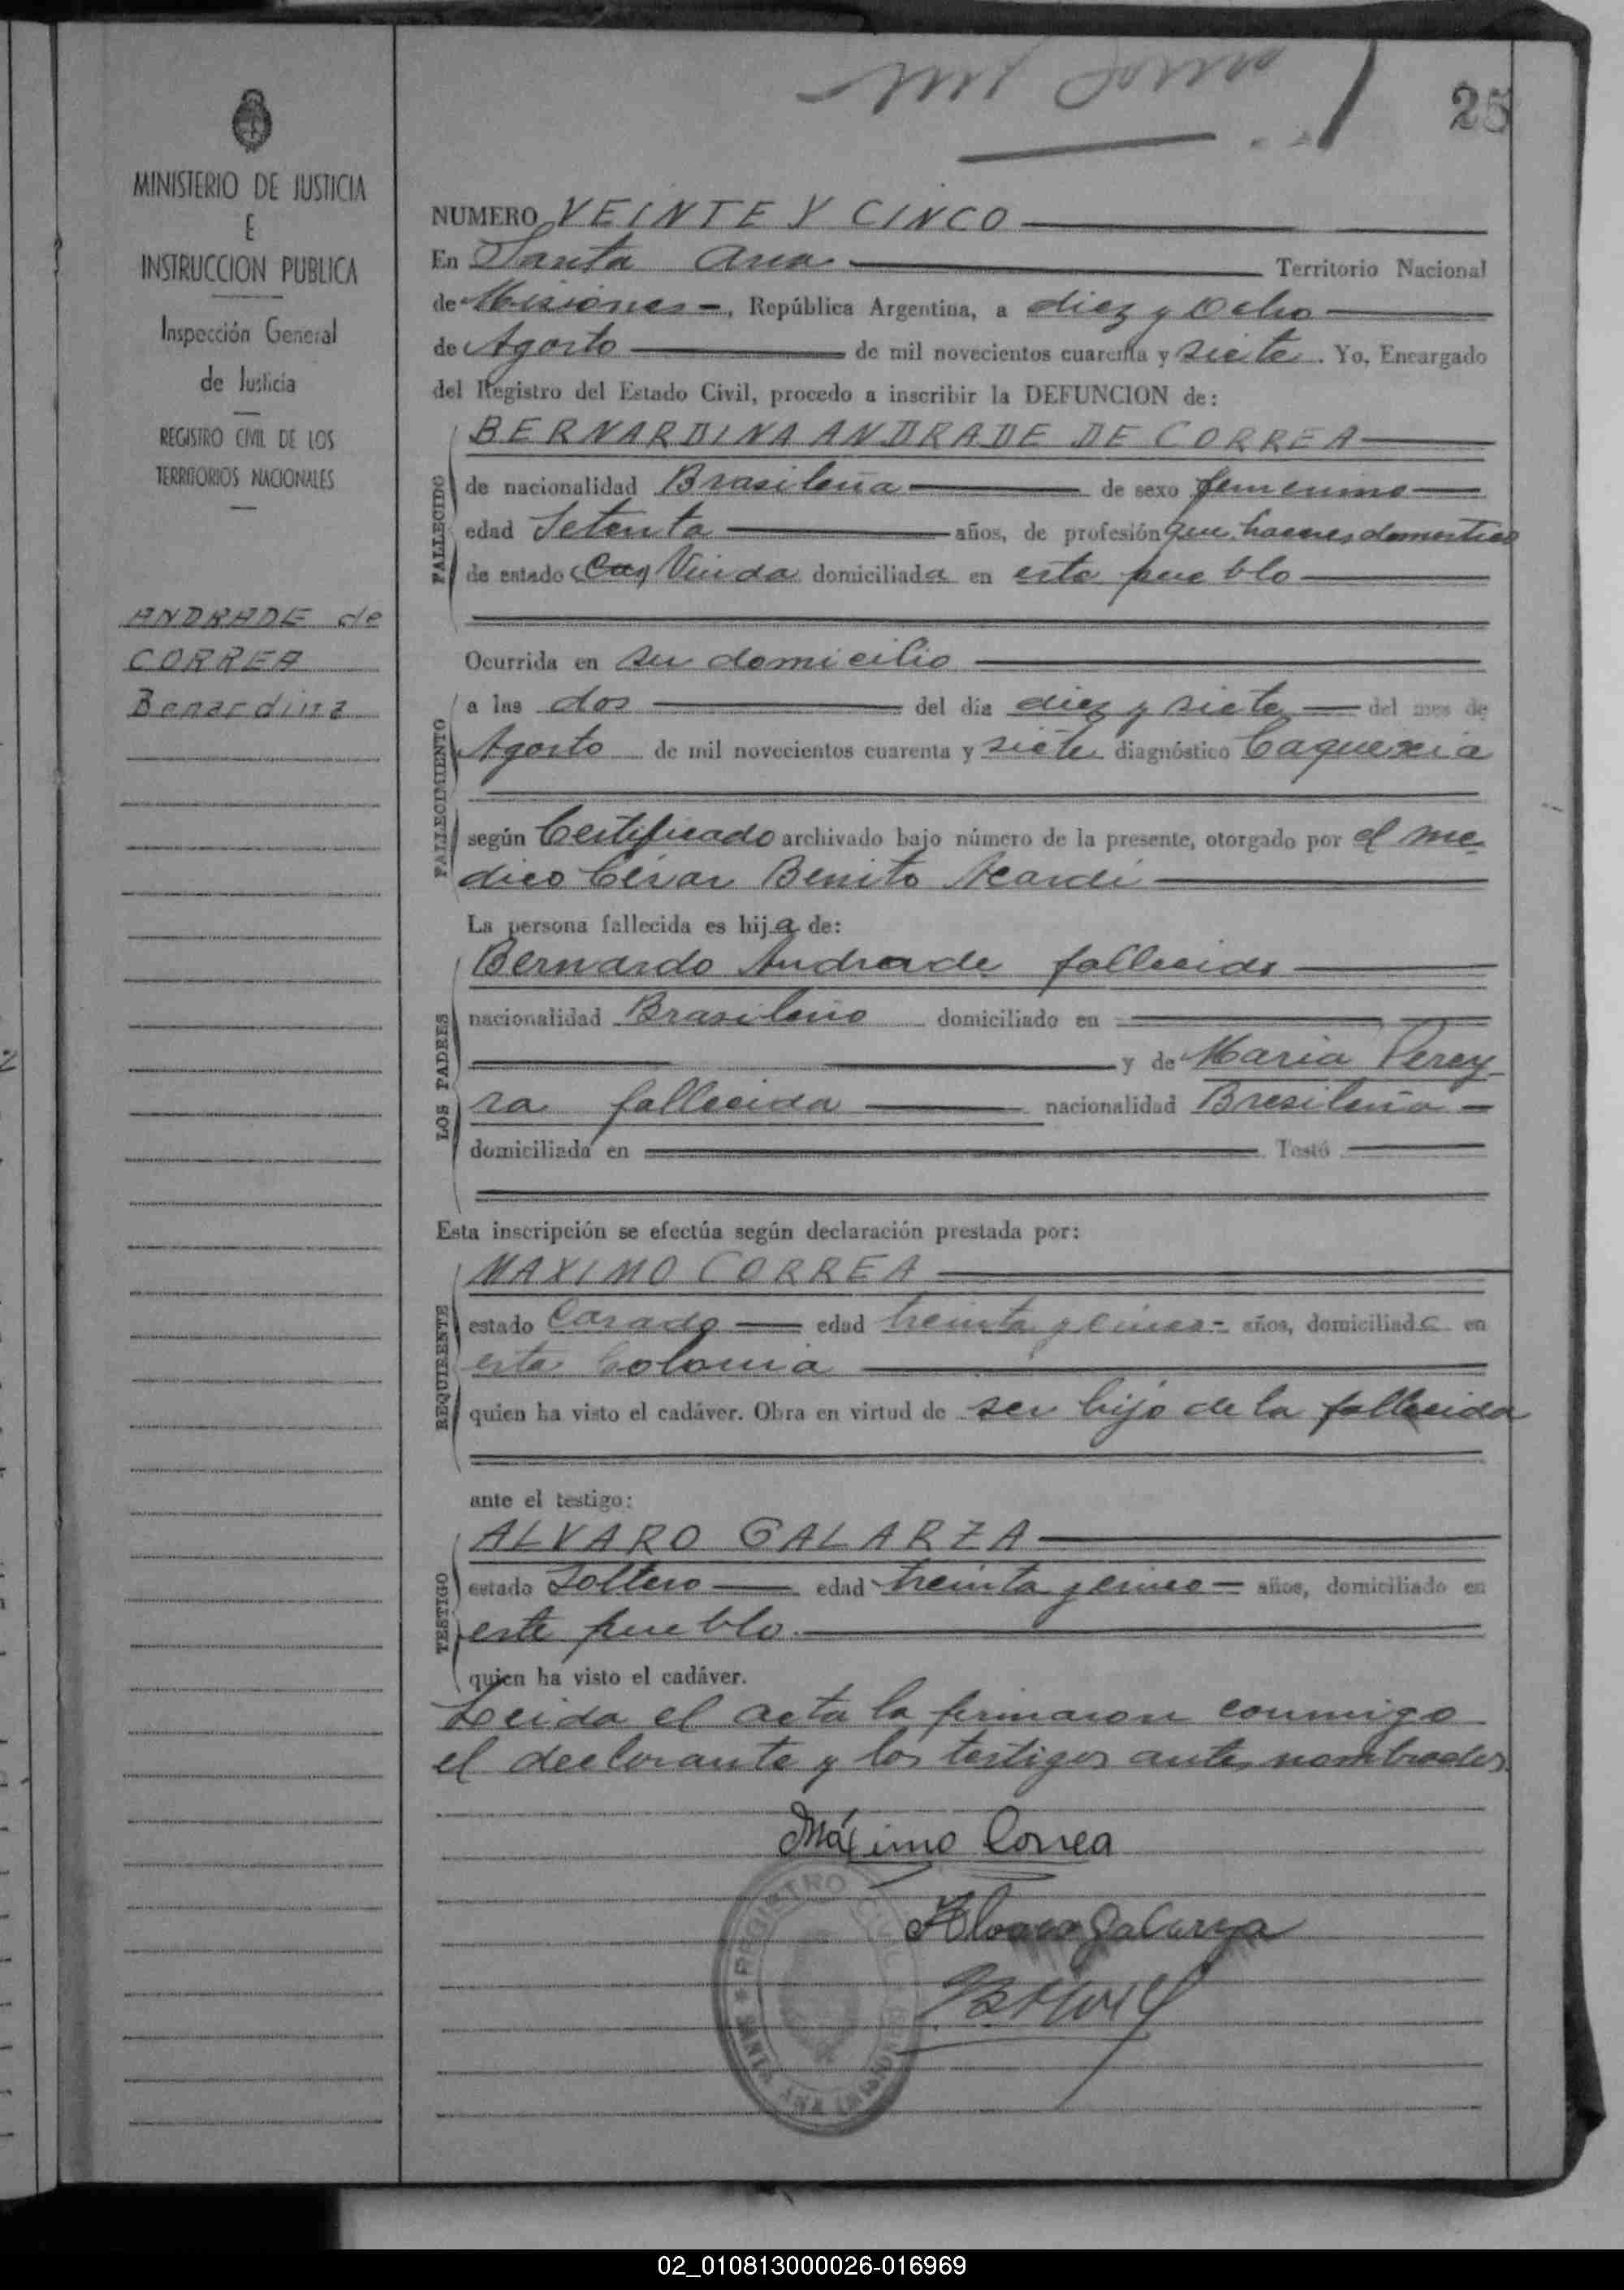 25
MINISTERIO DE JUSTICIA
E
INSTRUCCION PUBLICA
Inspección General
de Justicia
REGISTRO CIVIL DE LOS
TERRITORIOS NACIONALES
ANDRADE de
CORREA
Benardina
NUMERO VEINTE Y CINCO
En Santa Ana Territorio Nacional
de Misiones -, República Argentina, a diez y Ocho
de Agosto de mil novecientos cuarenta y siete. Yo, Encargado
del Registro del Estado Civil, procedo a inscribir la DEFUNCION de:
BERNARDINA ANDRADE DE CORREA
FALLECIDO
de nacionalidad Brasileña de sexo femenino
edad Setenta años, de profesión que haceres domestico
de estado (Cas) Viuda domiciliada en este pueblo
Ocurrida en su domicilio
FALLECIMIENTO
a las dos del dia diez y siete del mes de
Agosto de mil novecientos cuarenta y siete diagnóstico Caquexia
según Certificado archivado bajo número de la presente, otorgado por el me-
dico César Benito
La persona fallecida es hija de:
LOS PADRES
Bernardo Andrade fallecido
nacionalidad Brasileño domiciliado en
y de Maria Perey-
ra fallecida nacionalidad Bresileña -
domiciliada en Testó
Esta inscripción se efectúa según declaración prestada por:
REQUIRENTE
MAXIMO CORREA
estado Casado edad treinta y cinco - años, domiciliado en
esta Colonia
quien ha visto el cadáver. Obra en virtud de ser hijo de la fallecida
ante el testigo:
TESTIGO
ALVARO GALARZA
estado Soltero edad treinta y cinco - años, domiciliado en
este pueblo.
quien ha visto el cadáver.
Leida el acta la firmaron conmigo
el declarante y los testigos antes nombrados.
Máximo Correa
Alvaro Galarza
REGISTRO CIVIL
SANTA ANA (MISIONES)
02_010813000026-016969